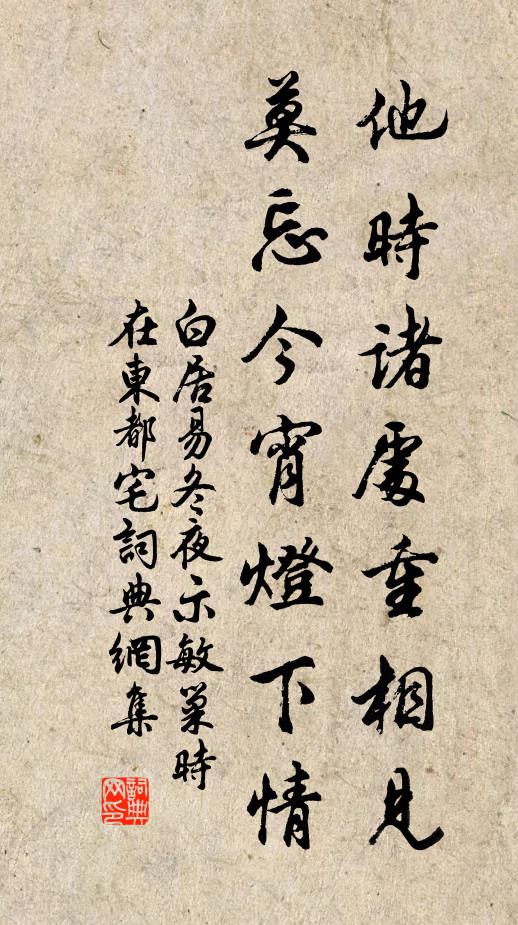 他時諸處重相見
莫忘今宵燈下情
白居易冬夜示敏巢時
在東都宅詞典網集
詞典網印